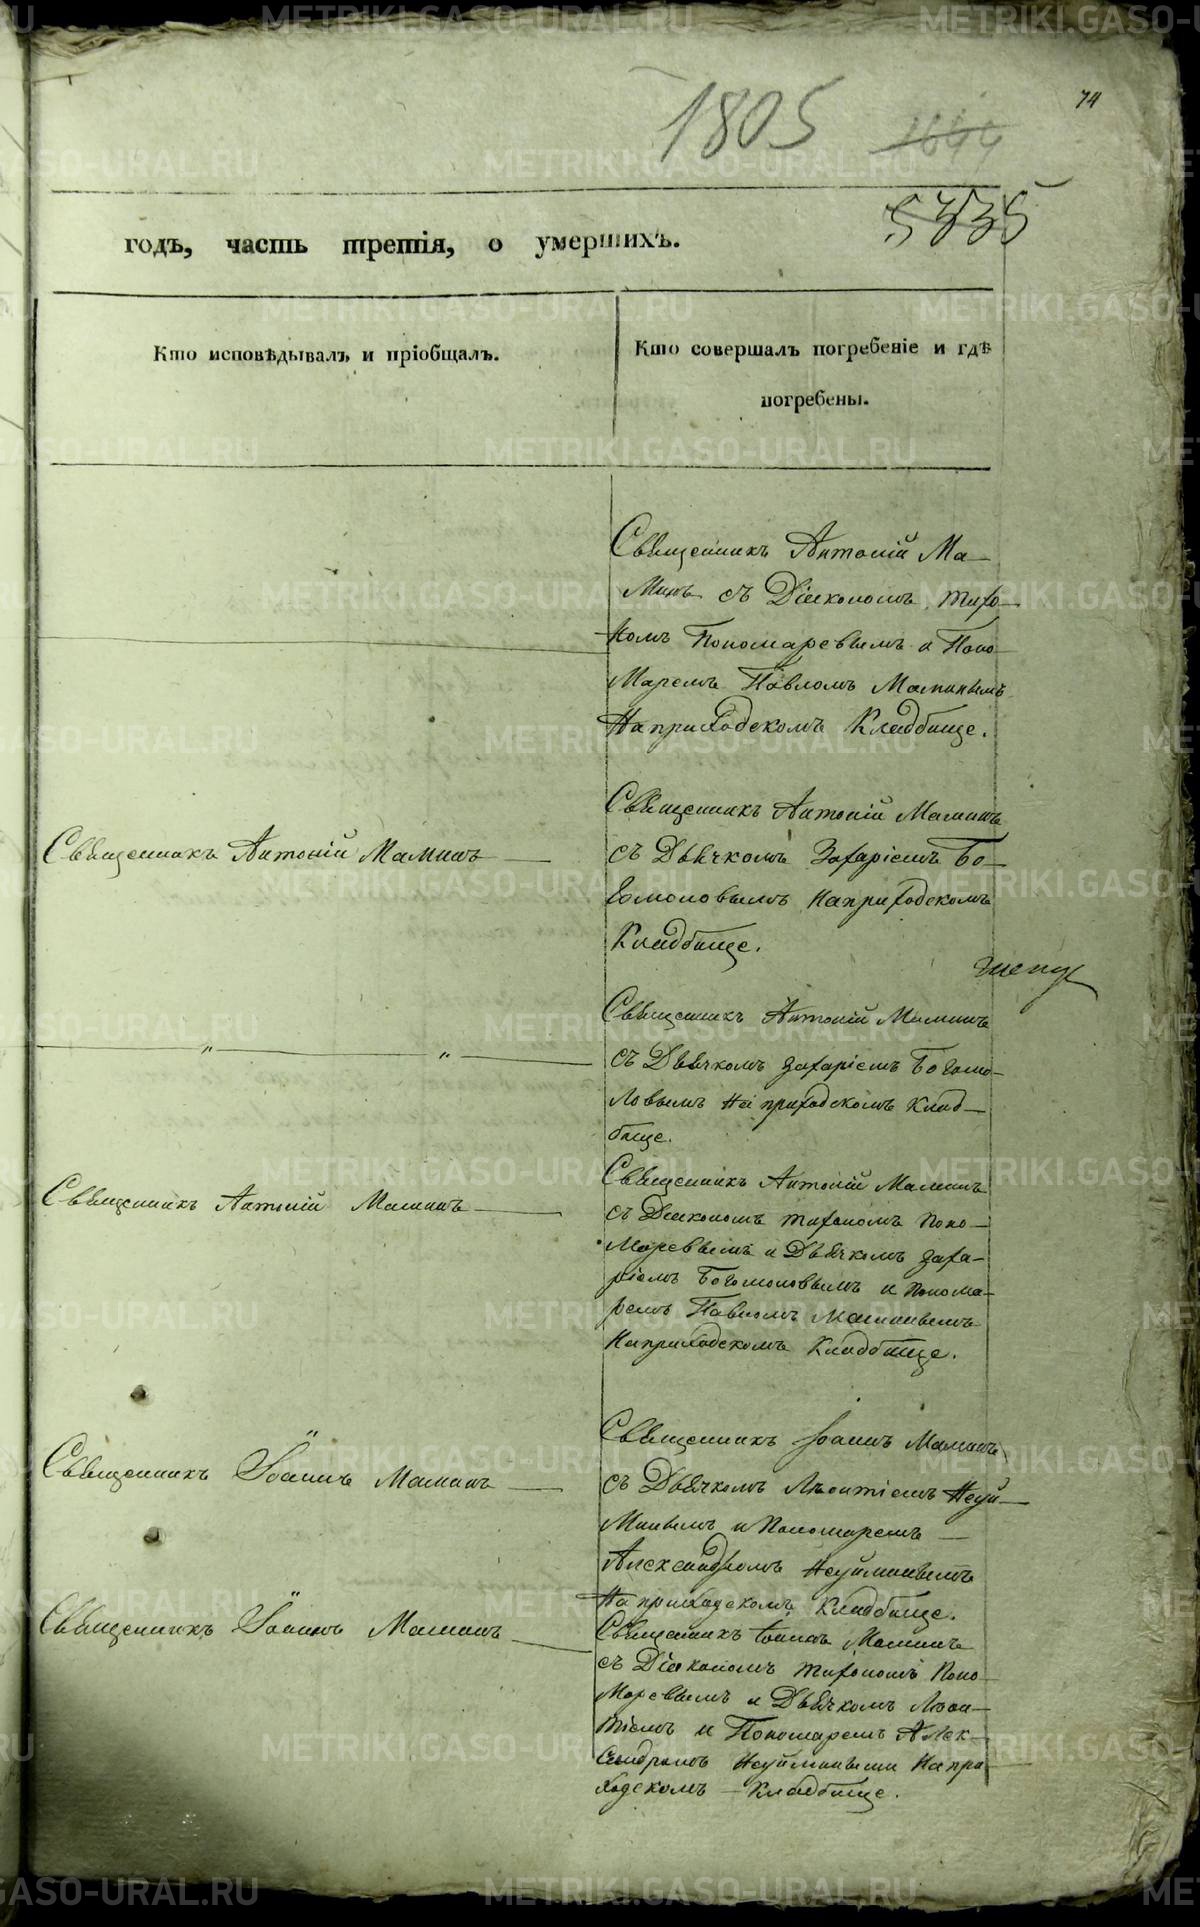 74
1805 1644
5335
годъ, часть третія, о умершихъ.
Кто исповѣдывалъ и пріобщалъ.
Кто совершалъ погребеніе и гдѣ
погребены.
Священникъ Антоній Ма-
минъ съ Діакономъ Тихо-
номъ Пономаревымъ и Поно
Маремъ Павломъ Маминымъ
На приходскомъ Кладбище.
Священникъ Антоній Маминъ
Священникъ Антоній Маминъ
съ Дьячкомъ Захаріемъ Бо-
гомоловымъ На приходскомъ
Кладбище.
" "
Священникъ Антоній Маминъ
съ Дьячкомъ Захаріемъ Богомо-
ловымъ На приходскомъ Клад-
бище.
Священникъ Антоній Маминъ
Священникъ Антоній Маминъ
съ Діакономъ Тихономъ Поно-
Маревымъ и Дьячкомъ Заха-
ріемъ Богомоловымъ и Понома-
ремъ Павломъ Маминымъ
На приходскомъ Кладбище.
Священникъ Іоаннъ Маминъ
Священникъ Іоаннъ Маминъ
съ Дьячкомъ Леонтіемъ Неуй-
Минымъ и Пономаремъ
Александромъ Неуйминымъ
На приходскомъ Кладбище.
Священникъ Іоаннъ Маминъ
Священникъ Іоаннъ Маминъ
съ Діакономъ Тихономъ Поно-
Маревымъ и Дьячкомъ Леон-
тіемъ и Пономаремъ Алек-
сандромъ Неуймиными На при-
ходскомъ Кладбище.
METRIKI.GASO-URAL.RU